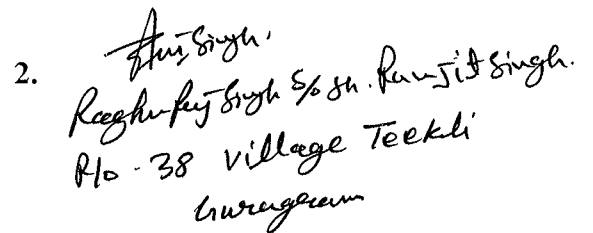 2.
Singh.
Singh S/o Sh. Ranjit Singh.
R/o - 38 Village Teekli
Gurugram